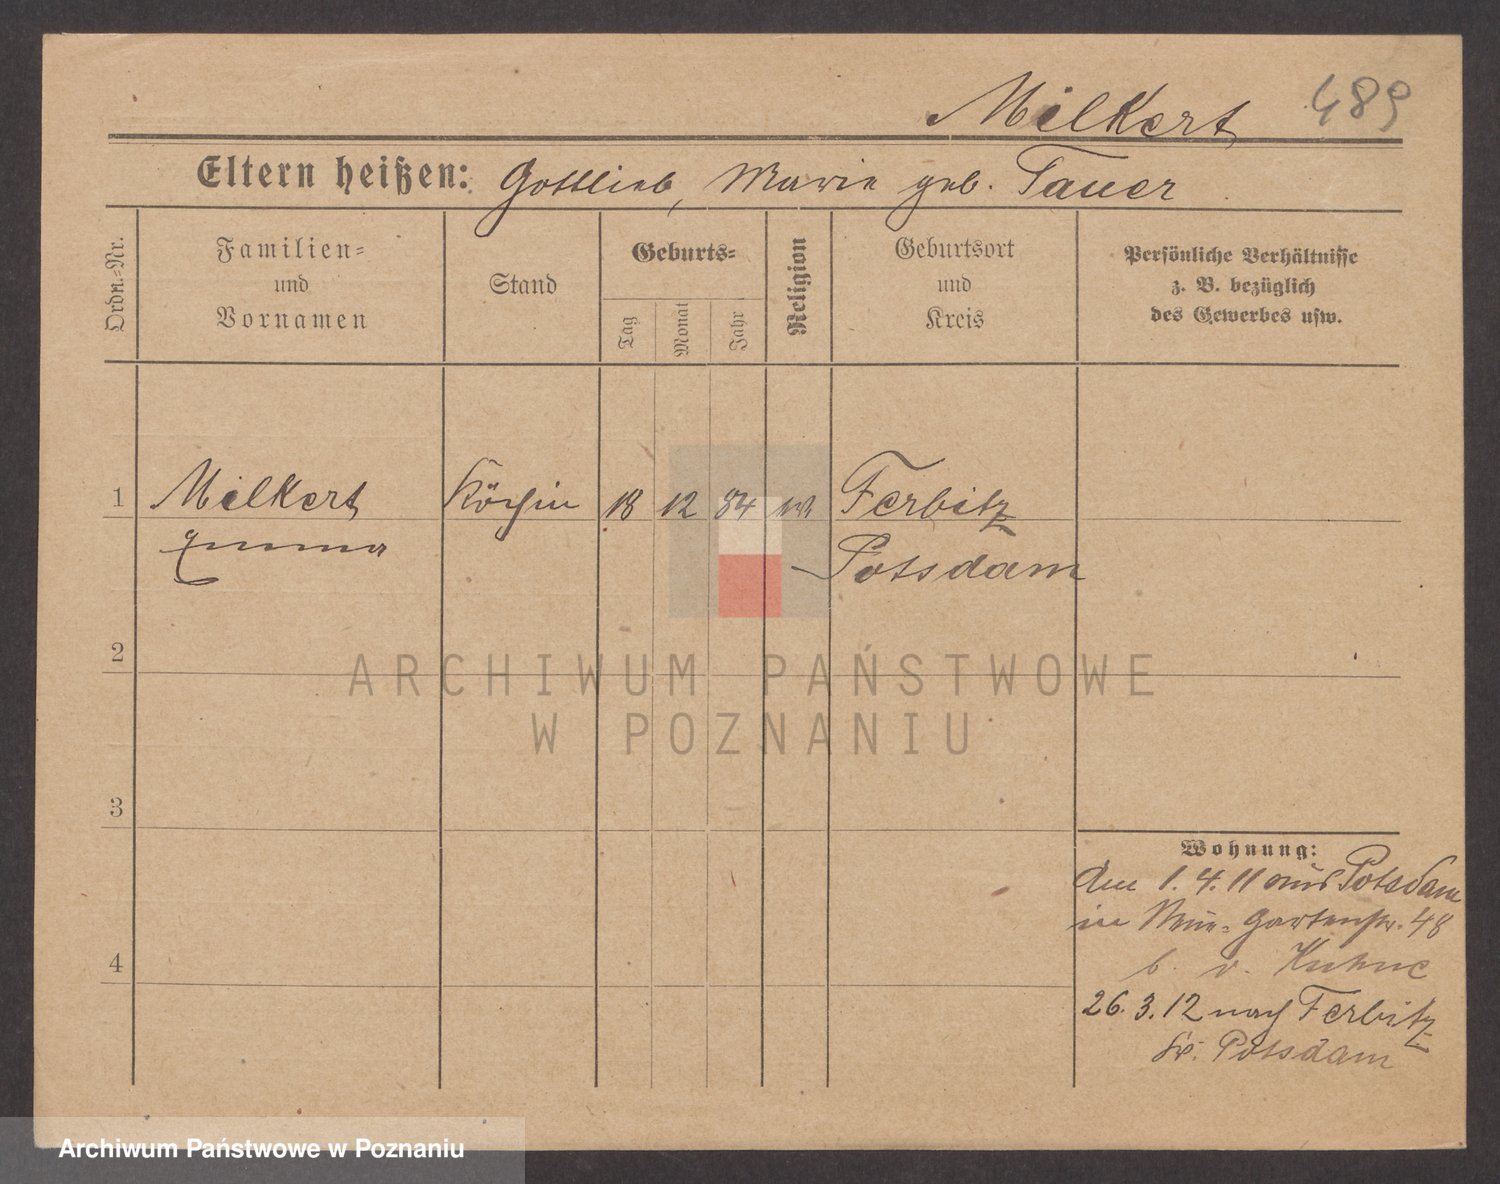 Milkert 489
Eltern heißen: Gottlieb, Marie geb. Tauer
Ordn.-Nr.
Familien-
und
Vornamen
Stand
Geburts-
Tag
Monat
Jahr
Religion
Geburtsort
und
Kreis
Persönliche Verhältnisse
z. B. bezüglich
des Gewerbes usw.
1 Milkert Köchin 18 12 84 Ferbitz
Emma Potsdam
2
3
4
Wohnung:
Am 1. 4. 11 aus Potsdam
in Neue-Gartenstr. 48
b. v. Kuhne
26. 3. 12 nach Ferbitz
Potsdam
ARCHIWUM PAŃSTWOWE
W POZNANIU
Archiwum Państwowe w Poznaniu